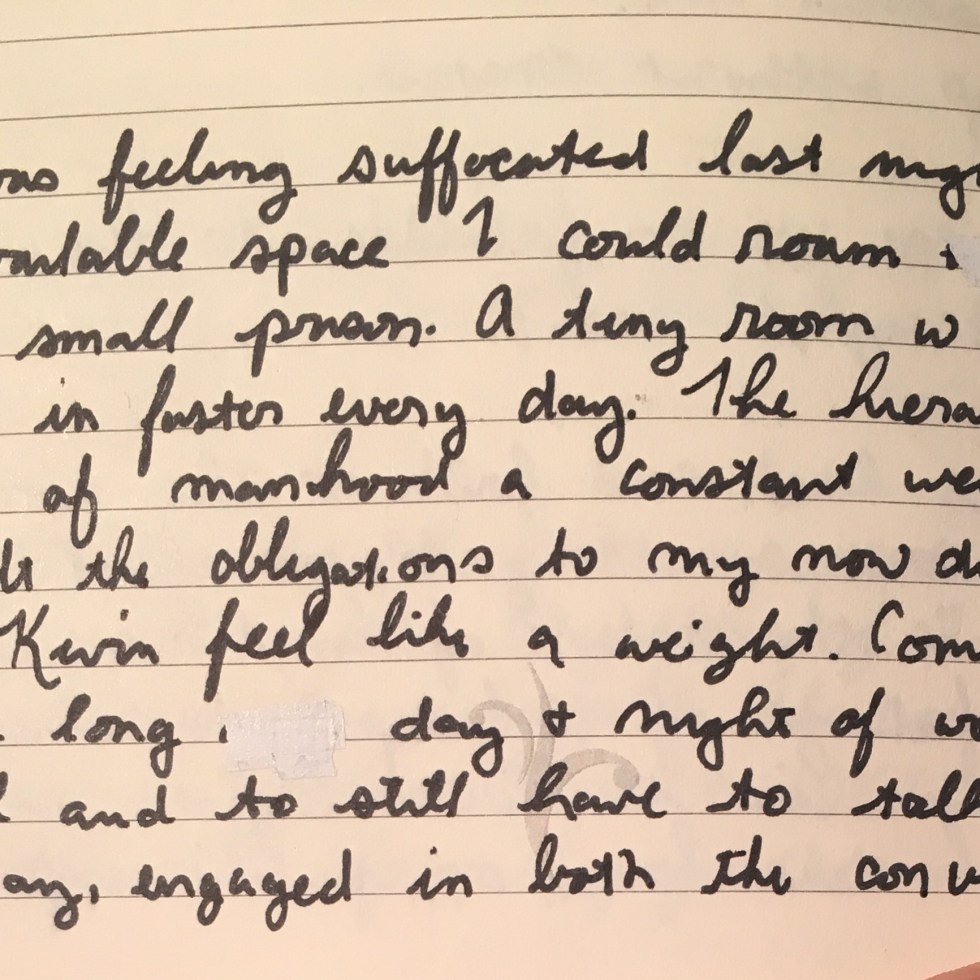 feeling suffocated last
space I could roam
small prison. A tiny room w
in faster every day. The
of manhood a constant
the obligations to my now
Kevin feel like a weight. Com
long day + night of
and to still have to
engaged in both the conv